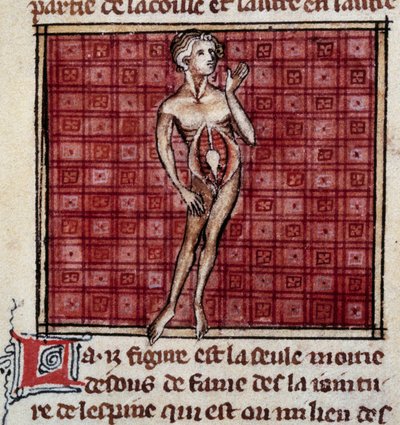 partie de lacoille et lautre en lautre
La .12 figure est la seule moitie
desous de fame des la iointu
re de lespine qui est ou milieu des